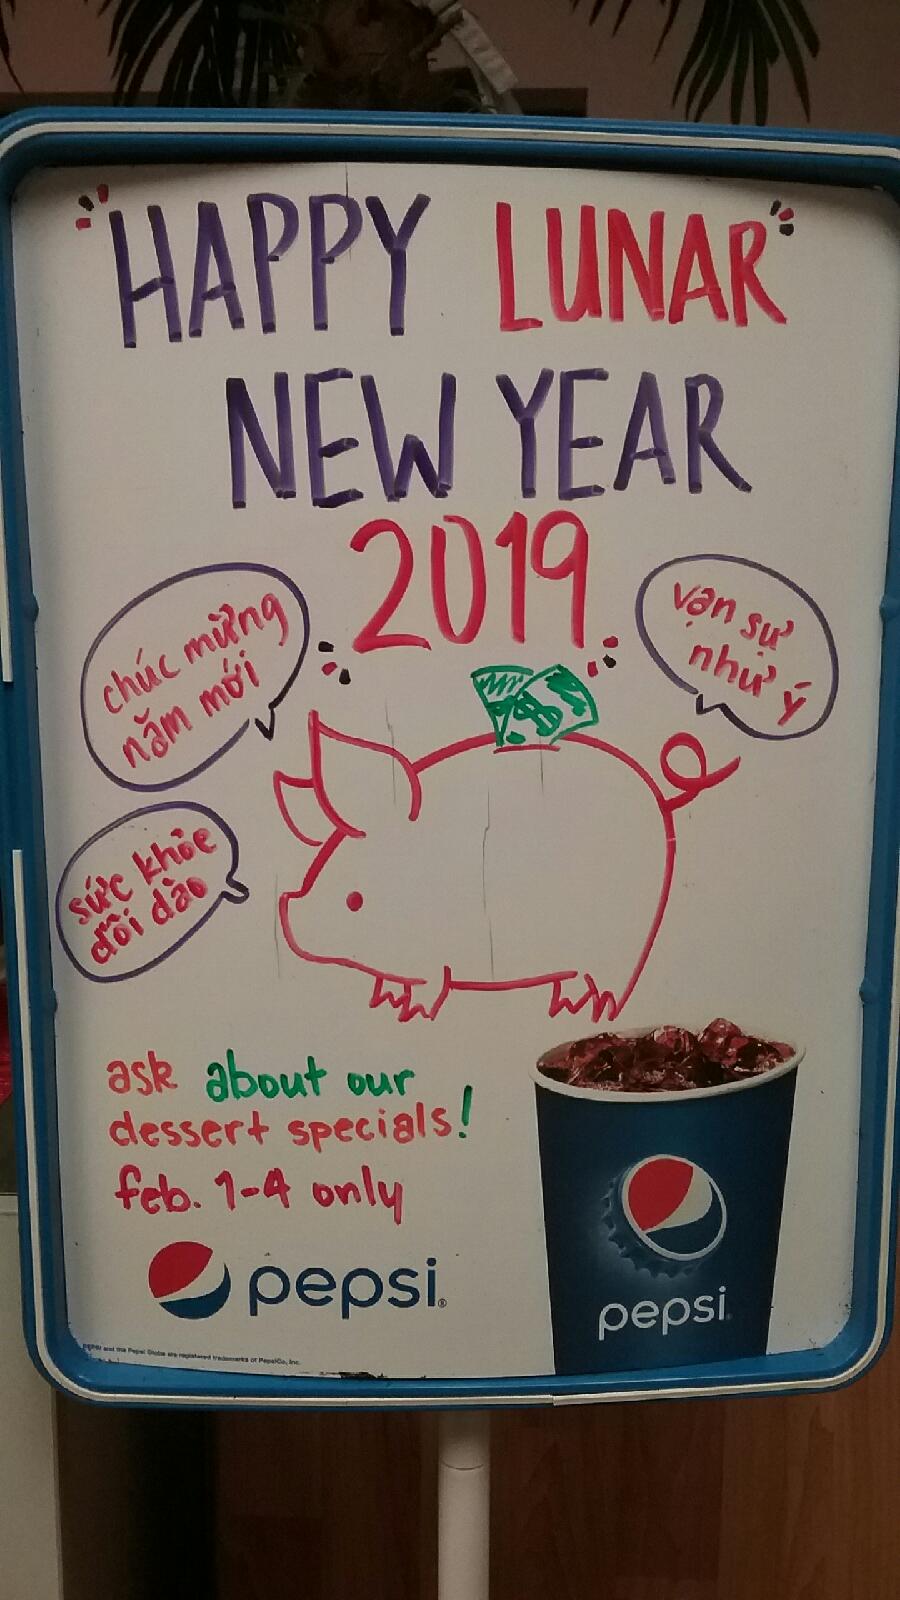 "HAPPY LUNAR"
NEW YEAR
2019
chúc mừng
năm mới
vạn sự
như ý
sức khỏe
dồi dào
ask about our
dessert specials!
feb. 1-4 only
pepsi®
pepsi
PEPSI and the Pepsi Globe are registered trademarks of PepsiCo, Inc.